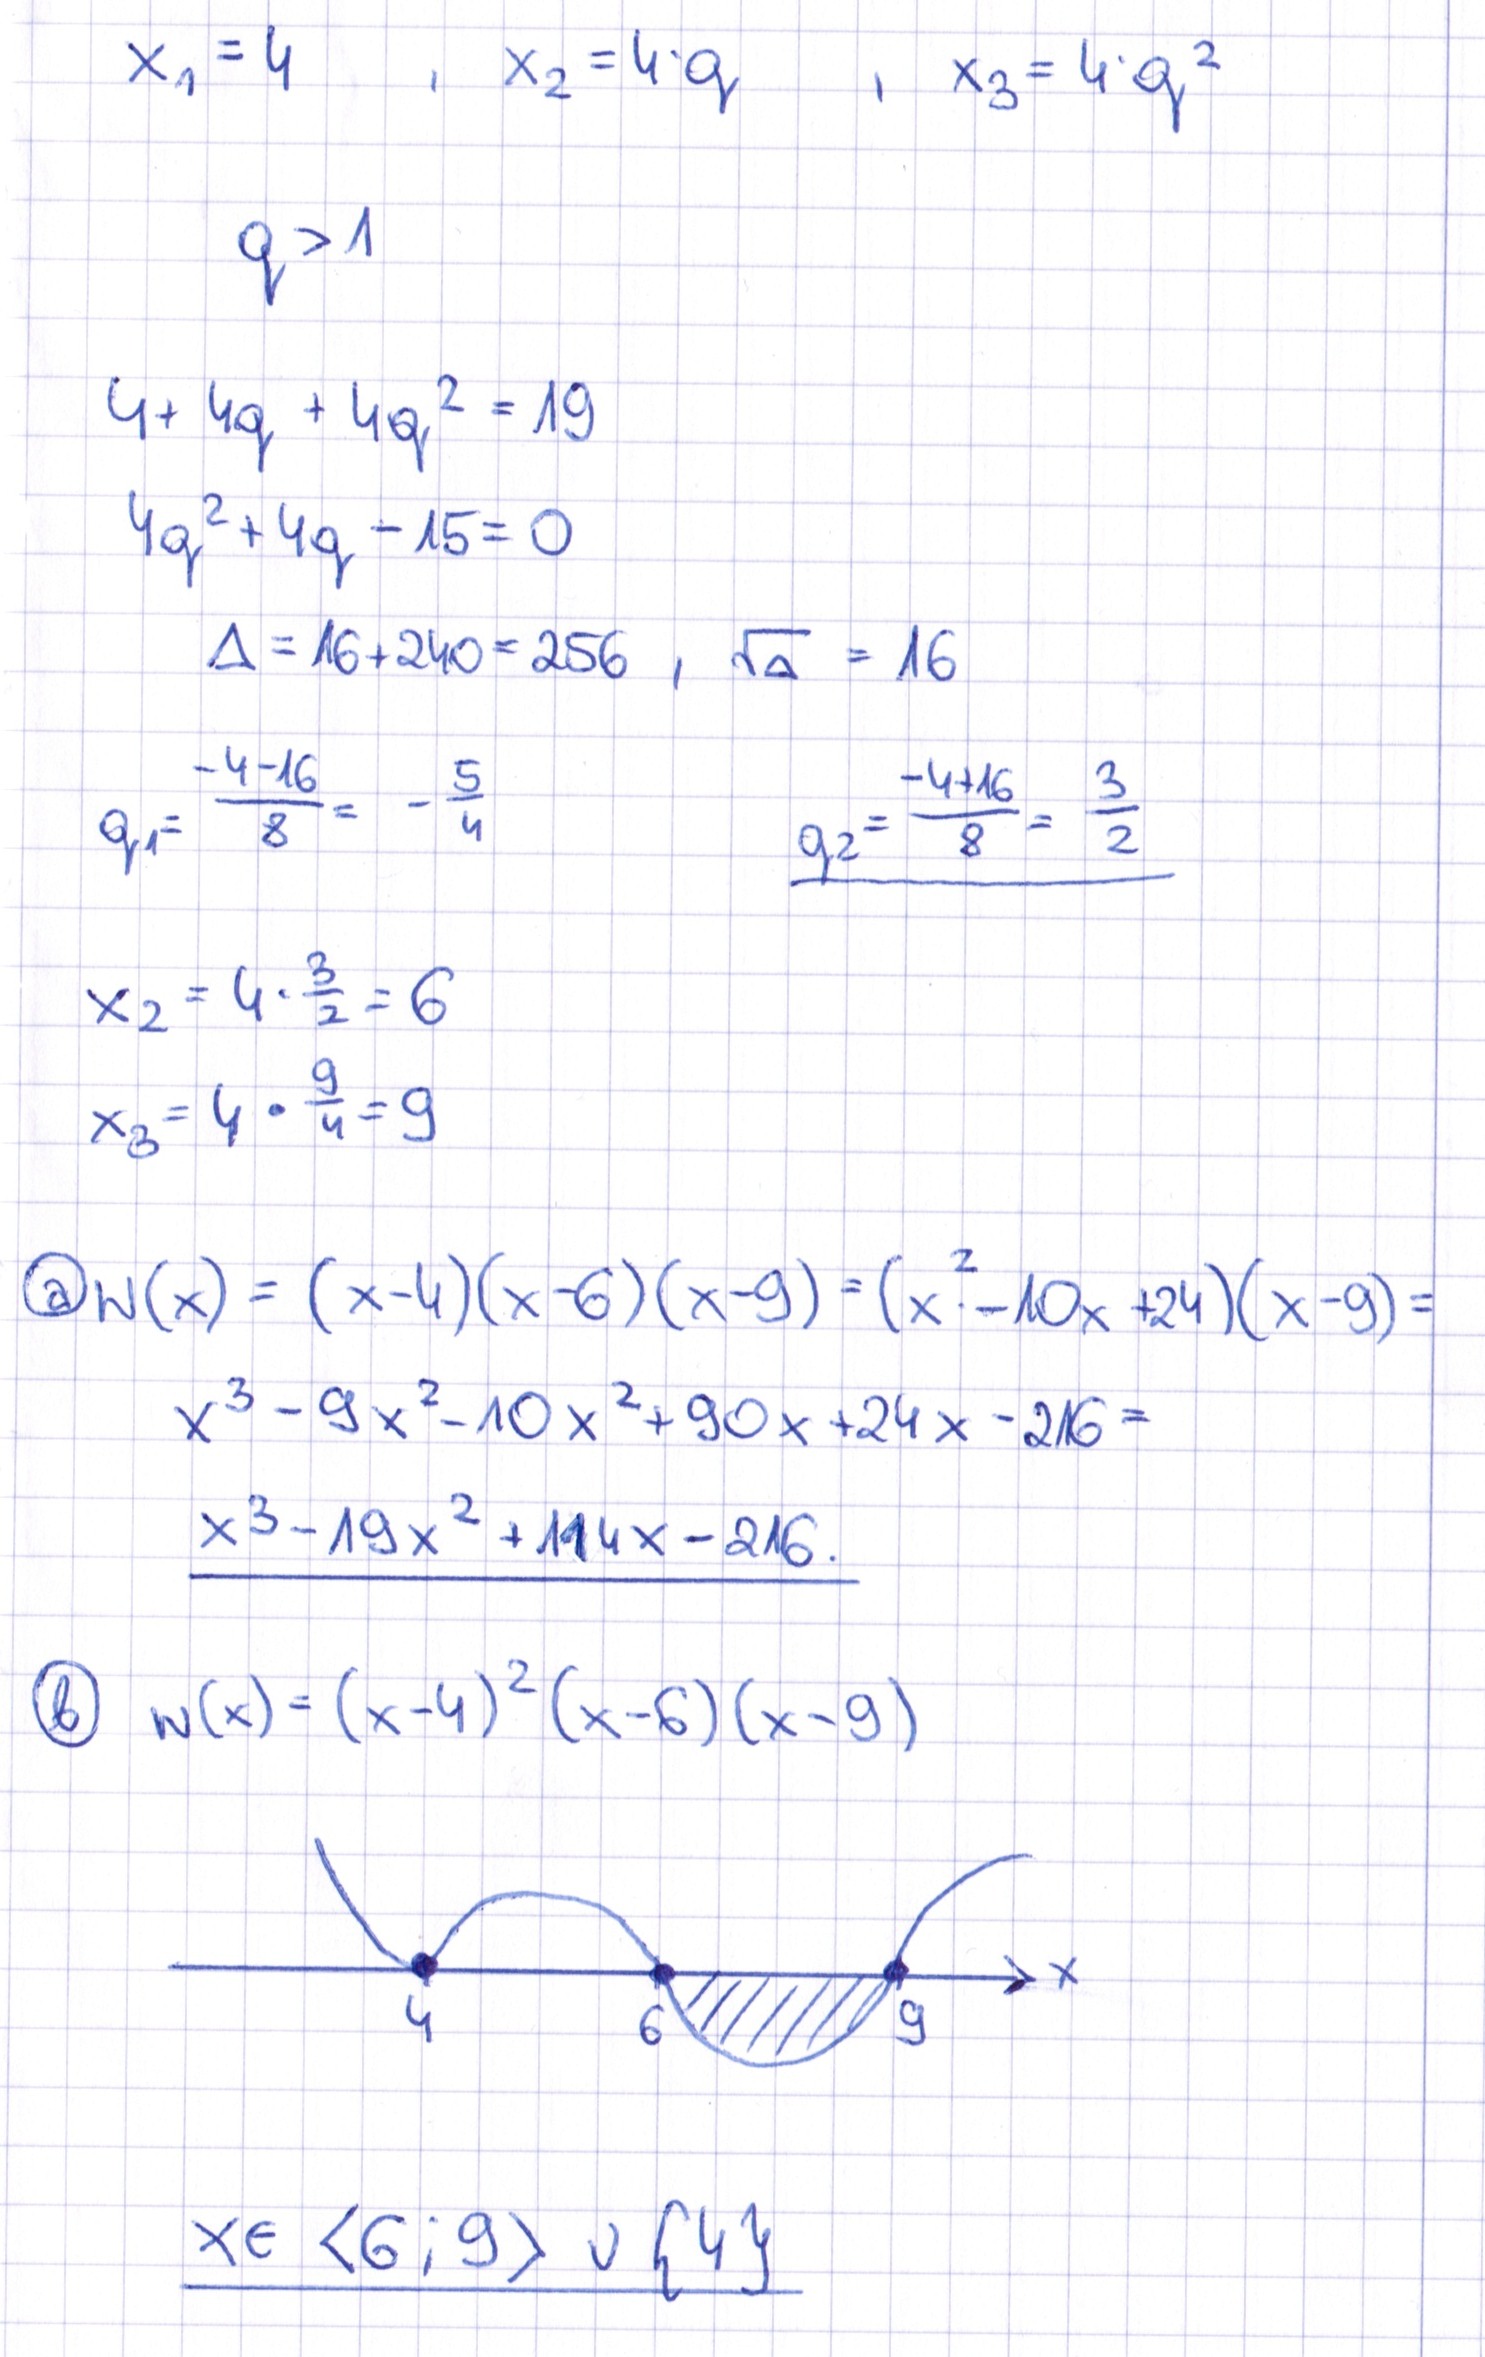 x₁ = 4 , x₂ = 4·q , x₃ = 4·q²
q > 1
4 + 4q + 4q² = 19
4q² + 4q - 15 = 0
Δ = 16 + 240 = 256 , √Δ = 16
q₁ = (-4-16)/8 = -5/4 q₂ = (-4+16)/8 = 3/2
x₂ = 4 · 3/2 = 6
x₃ = 4 · 9/4 = 9
ⓐ W(x) = (x-4)(x-6)(x-9) = (x² - 10x + 24)(x-9) =
x³ - 9x² - 10x² + 90x + 24x - 216 =
x³ - 19x² + 114x - 216.
ⓑ W(x) = (x-4)²(x-6)(x-9)
x
4 6 9
x ∈ <6;9> ∪ {4}